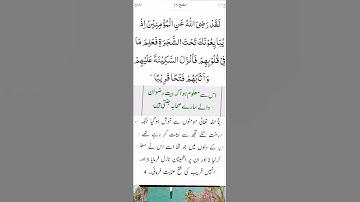 لَقَدْ رَضِيَ اللّٰهُ عَنِ الْمُؤْمِنِيْنَ اِذْ
يُبَايِعُوْنَكَ تَحْتَ الشَّجَرَةِ فَعَلِمَ مَا
فِيْ قُلُوْبِهِمْ فَاَنْزَلَ السَّكِيْنَةَ عَلَيْهِمْ
وَاَثَابَهُمْ فَتْحًا قَرِيْبًا
اس سے معلوم ہوا کہ بیعت رضوان
والے سارے صحابہ جنتی ہیں
اللہ تعالیٰ مومنوں سے خوش ہو گیا جبکہ
درخت تلے تجھ سے بیعت کر رہے تھے
کے دلوں میں جو تھا اسے اس نے معلو
کر لیا 2 اور ان پر اطمینان نازل فرمایا 3 اور
انہیں قریب کی فتح عنایت فرمائی۔ 4